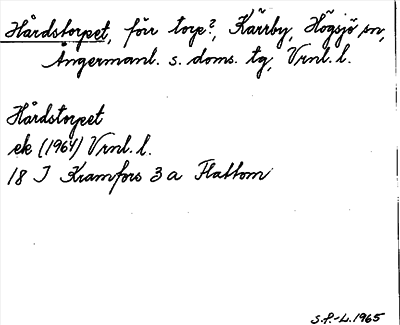 Hårdstorpet, förr torp?, Kärrby, Högsjö sn,
Ångermanl. s. doms. tg, Vrnl. l.
Hårdstorpet
ek (1964) Vrnl. l.
18 I Kramfors 3 a Flattom
S.P.-L. 1965